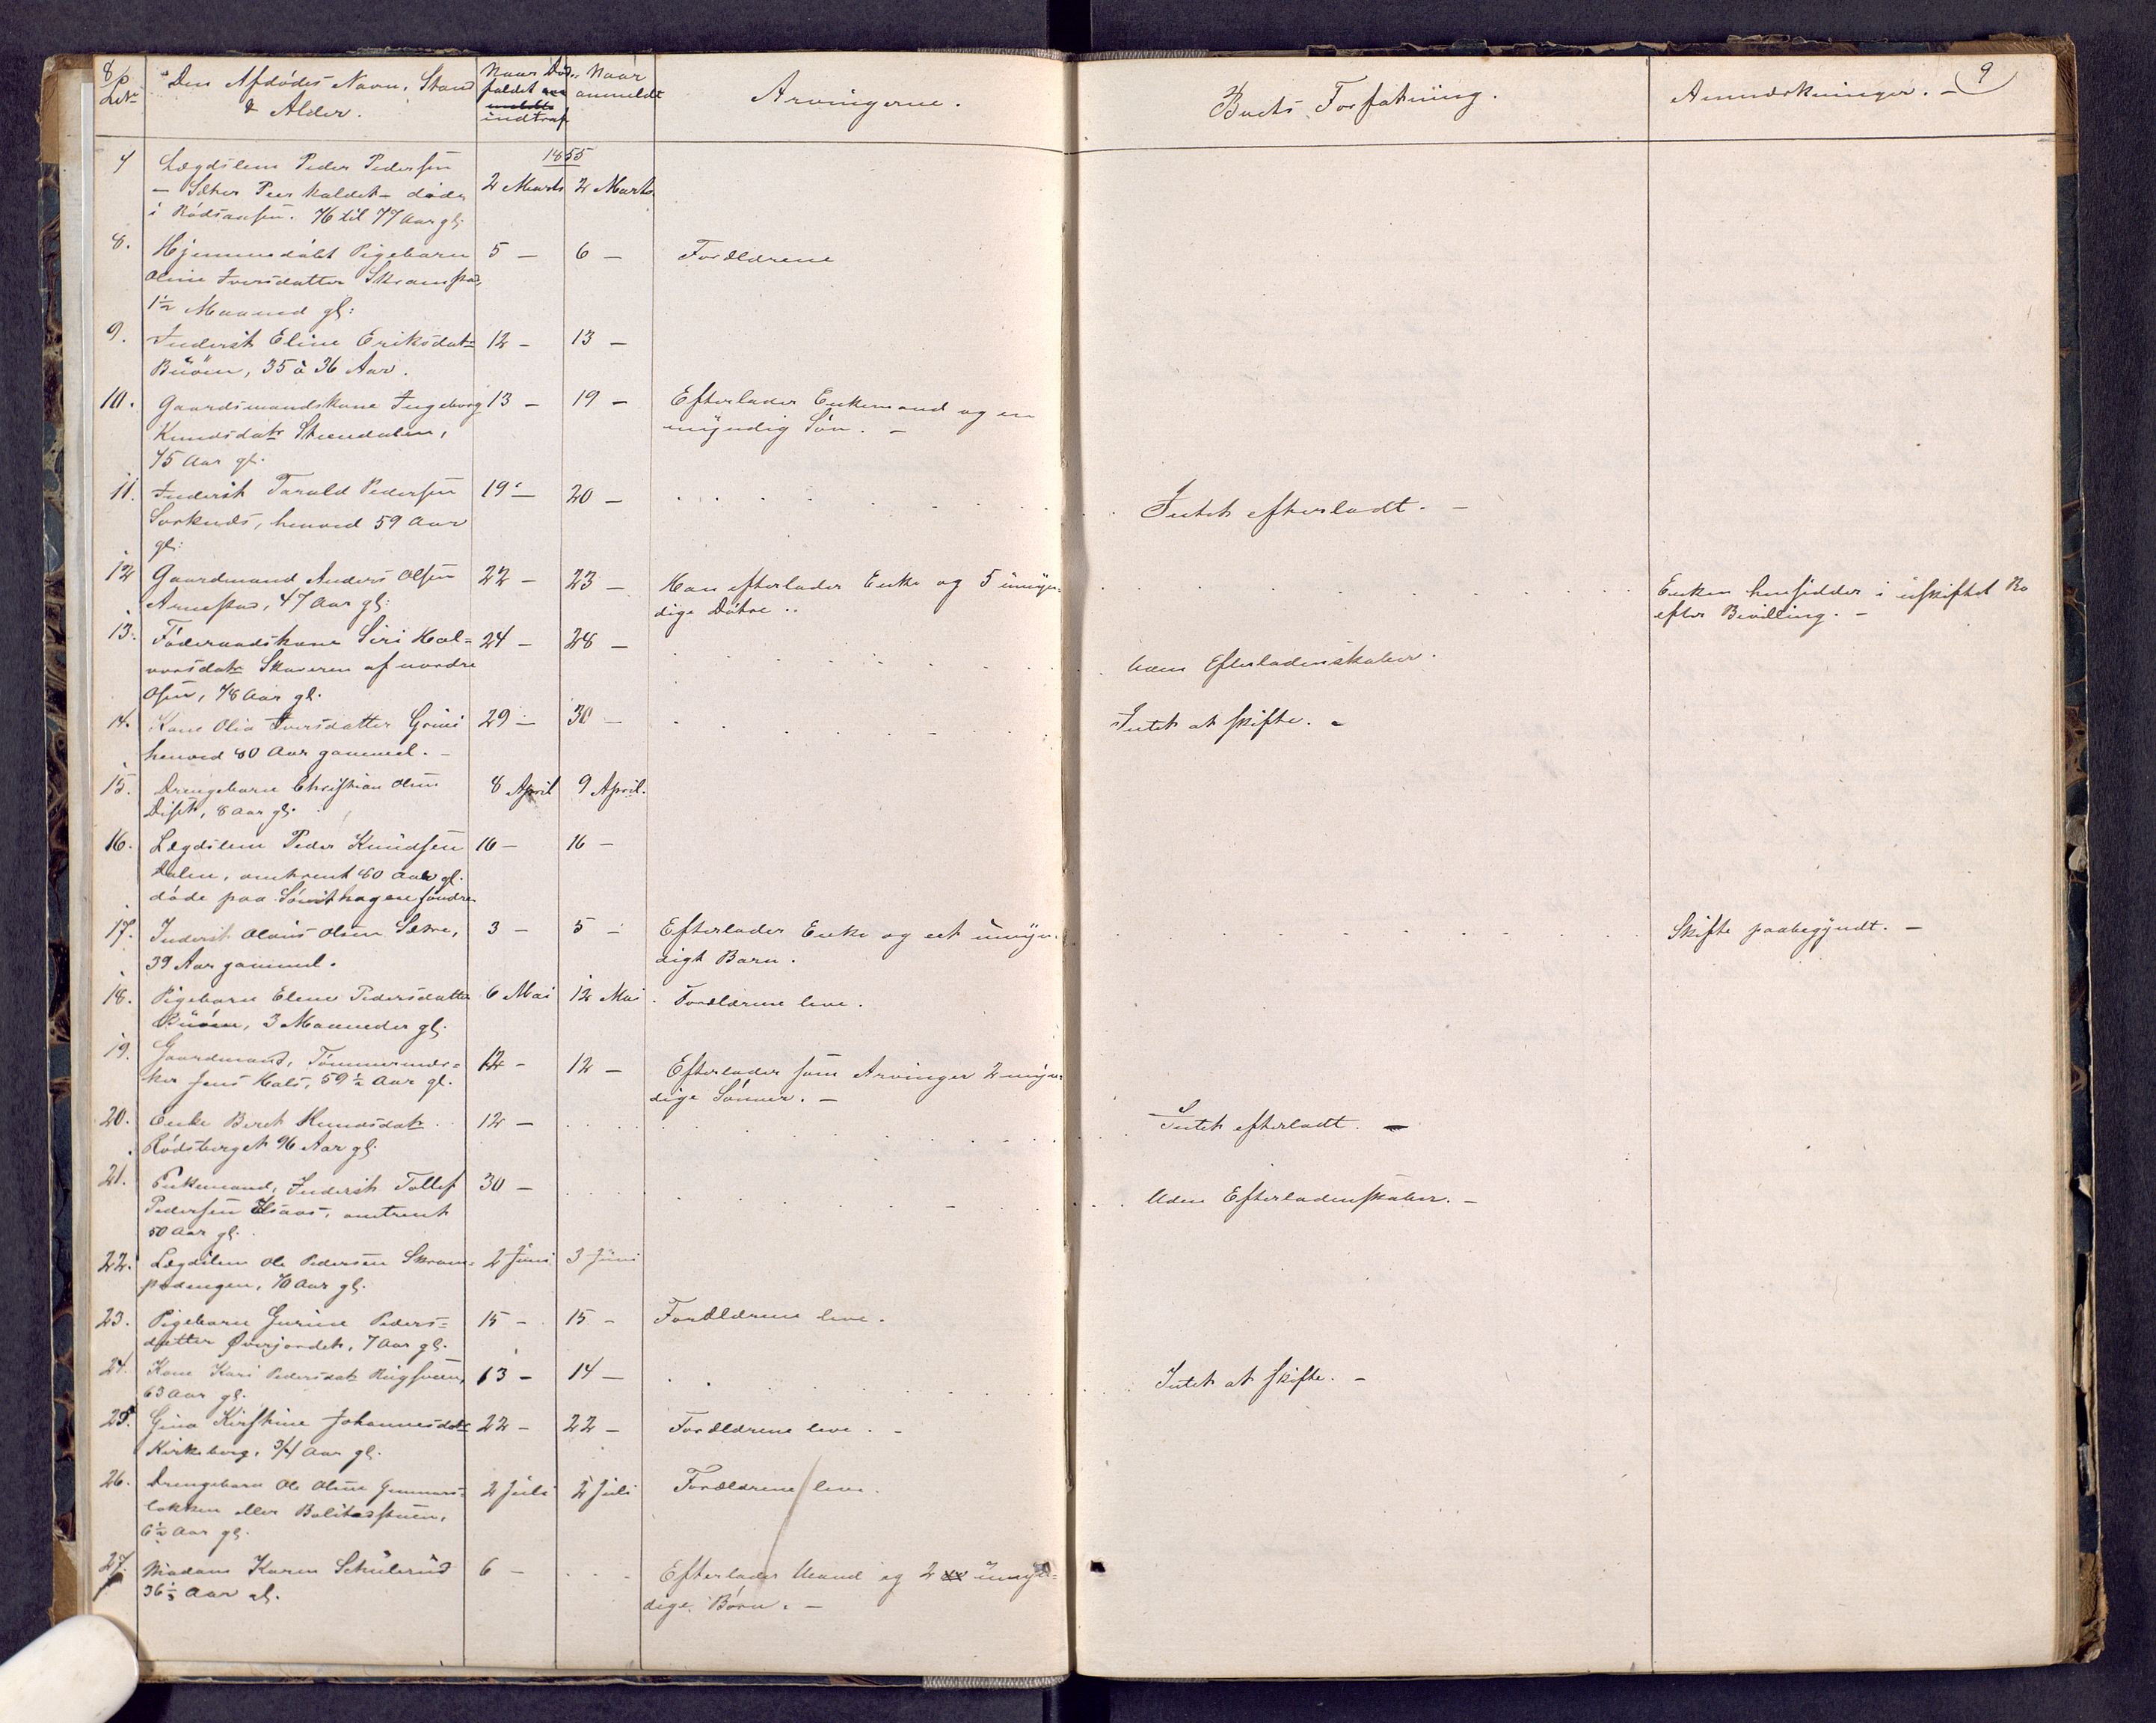 8
LNr
Den Afdødes Navn, Stand
& Alder.
Naar Døds-
faldet
indtraf
Naar
anmeldt
Arvingerne.
Boets Forfatning.
Anmærkninger. -
9
1855
7
Lægdslem Peder Pedersen
- Sæter Peer kaldet - døde
i Rödsaasen. 76 til 77 Aar gl:
2 Marts
2 Marts
8.
Hjemmedøbt Pigebarn
Oline Iversdatter Skramstad,
1½ Maaned gl:
5 -
6 -
Forældrene
9.
Inderst Eline Eriksdatr
Büöen, 35 à 36 Aar.
12 -
13 -
10.
Gaardmandskone Ingeborg
Knudsdatr Steendalen,
75 Aar gl.
13 -
19 -
Efterlader Enkemand og en
myndig Søn. -
11.
Inderst Tarald Pedersen
Sorknæs, henved 59 Aar
gl:
19 -
20 -
Intet efterladt. -
12
Gaardmand Anders Olsen
Arnestad, 47 Aar gl:
22 -
23 -
Han efterlader Enke og 5 umyn-
dige Døtre..
Enken hensidder i uskiftet Bo
efter Bevilling. -
13.
Föderaadskone Siri Hal-
vorsdatr Skaveren af nordre
Osen, 78 Aar gl.
24 -
28 -
Uden Efterladenskaber.
14.
Kone Olia Iversdatter Grini
henved 80 Aar gammel. -
29 -
30 -
Intet at skifte. -
15.
Drengebarn Christian Olsen
Diset, 8 Aar gl.
8 April
9 April.
16.
Lægdslem Peder Knudsen
Dalen, omtrent 80 Aar gl.
døde paa Sörsthagen søndre
16 -
16 -
17.
Inderst Olaus Olsen Sætre,
39 Aar gammel.
3 -
5 -
Efterlader Enke og eet umyn-
digt Barn.
Skifte paabegyndt. -
18.
Pigebarn Elene Pedersdatter
Büöen, 3 Maaneder gl.
6 Mai
12 Mai
Forældrene leve.
19.
Gaardmand, Tömmermær-
ker Jens Hals, 59½ Aar gl.
12 -
12 -
Efterlader som Arvinger 2 myn-
dige Sønner. -
20.
Enke Beret Knudsdatr
Rödsberget 96 Aar gl.
12 -
Intet efterladt. -
21.
Enkemand, Inderst Tollef
Pedersen Haaos, omtrent
50 Aar gl.
30 -
Uden Efterladenskaber. -
22.
Lægdslem Ole Pedersen Skram-
stadengen, 70 Aar gl.
2 Juni
3 Juni
23.
Pigebarn Gurine Peders-
datter Øverjordet, 7 Aar gl.
15 -
15 -
Forældrene leve.
24.
Kone Kari Pedersdatr Rugsveen,
63 Aar gl.
13 -
14 -
Intet at skifte. -
25.
Gina Kirstine Johannesdatr
Kirkeberg, 3/4 Aar gl.
22 -
22 -
Forældrene leve. -
26.
Drengebarn Ole Olsen Gunnars-
løkken eller Bolitesstuen,
6½ Aar gl.
2 Juli
2 Juli
Forældrene leve.
27.
Madam Karen Schulerud
36½ Aar gl.
6 -
Efterlader Mand og 2 umyn-
dige Børn. -